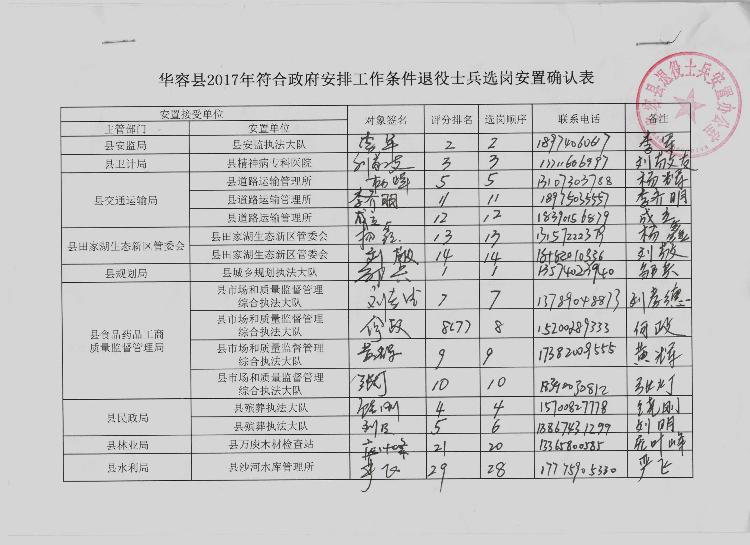 华容县2017年符合政府安排工作条件退役士兵选岗安置确认表
华容县退役士兵安置办公室
安置接受单位 对象签名 评分排名 选岗顺序 联系电话 备注
主管部门 安置单位
县安监局 县安监执法大队 李军 2 2 18974060617 李军
县卫计局 县精神病专科医院 3 3
县交通运输局
县道路运输管理所 5 5 13107303788
县道路运输管理所 李齐明 11 11 18975035557 李齐明
县道路运输管理所 12 12 18390156879
县田家湖生态新区管委会
县田家湖生态新区管委会 13 13
县田家湖生态新区管委会 刘敏 14 14 刘敏
县规划局 县城乡规划执法大队 1 1
县食品药品工商
质量监督管理局
县市场和质量监督管理
综合执法大队 7 7 13789048873
县市场和质量监督管理
综合执法大队 何政 8(7) 8 何政
县市场和质量监督管理
综合执法大队 黄辉 9 9 17382009555 黄辉
县市场和质量监督管理
综合执法大队 10 10
县民政局
县殡葬执法大队 4 4 15700827778
县殡葬执法大队 刘明 5 6 13867431299 刘明
县林业局 县万庾木材检查站 21 20 13365800585
县水利局 县沙河水库管理所 严飞 29 28 17775905330 严飞